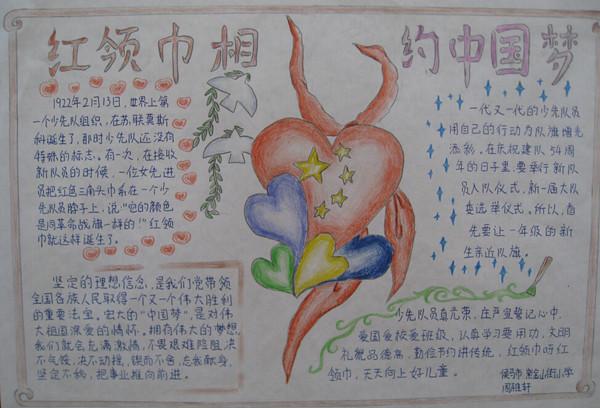 红领巾相
约中国梦
1922年2月13日,世界上第
一个少先队组织,在苏联莫斯
科诞生了,那时少先队还没有
特殊的标志。有一次,在接收
新队员的时候,一位女先进
员把红色三角头巾系在一个少
先队员脖子上,说“它的颜色
是同革命战旗一样的!”红领
巾就这样诞生了。
一代又一代的少先队员
用自己的行动为队旗增光
添彩。在庆祝建队54周
年的日子里,要举行新队
员入队仪式,新一届大队
委选举仪式。所以,首
先要让一年级的新
生亲近队旗。
坚定的理想信念,是我们党带领
全国各族人民取得一个又一个伟大胜利
的重要法宝,宏大的“中国梦”,是对伟
大祖国深爱的情怀。拥有伟大的梦想,
我们就会充满激情,不畏艰难险阻,决
不气馁,决不动摇,锲而不舍,忠诚献身,
坚定不移,把事业推向前进。
少先队员真光荣,在声誓记心中,
爱国爱校爱班级,认真学习要用功,文明
礼貌品德高,勤俭节约讲传统,红领巾呀红
领巾,天天向上好儿童。
侯马市 紫金山街小学
周雅轩